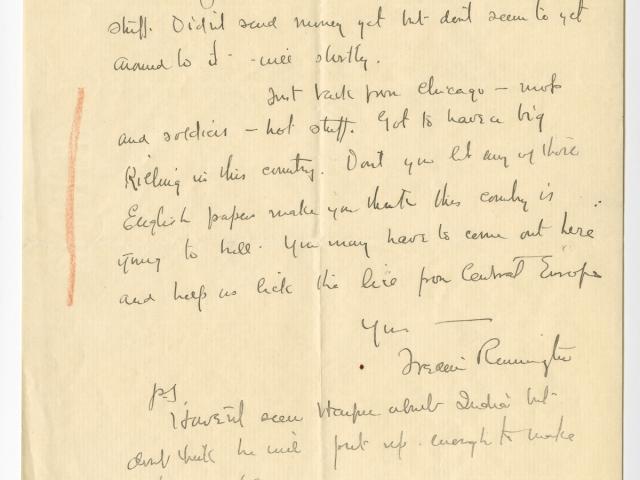 stuff. Didn't send money yet but don't seem to get
around to it - will shortly.
Just back from Chicago - mobs
and soldiers - hot stuff. Got to have a big
Killing in this country. Dont you let any of those
English papers make you think this country is
going to hell. You may have to come out here
and help us lick the lice from Central Europe
Yours
Frederic Remington
P.S
Haven't seen Harper about India but
dont think he will put up enough to make